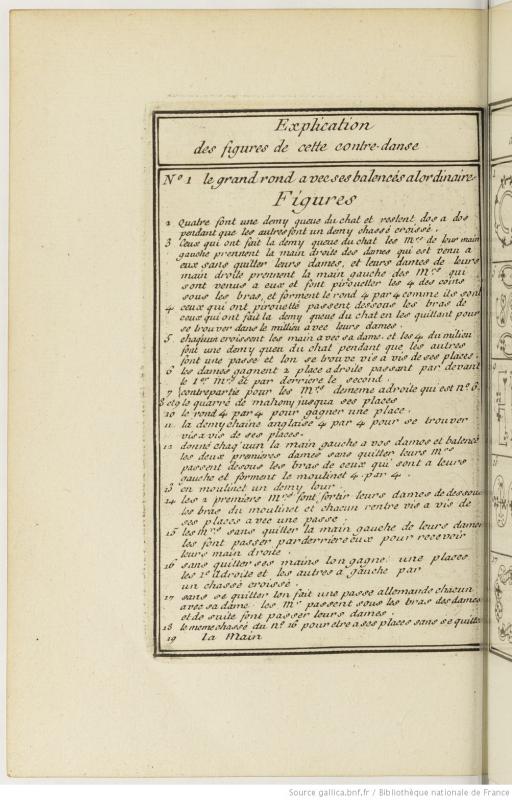 Explication
des figures de cette contre-danse
N.º 1 le grand rond avec ses balencés alordinaire
Figures
2 Quatre font une demy queue du chat et restent dos a dos
pendant que les autres font un demy chassé croissé.
3 Ceux qui ont fait la demy queue du chat les M.rs de leur main
gauche prennent la main droite des dames qui est venu a
eux sans quitter leurs dames, et leurs dames de leurs
main droite prennent la main gauche des M.rs qui
sont venus a eux et font pirouetter les 4 des coins
sous les bras, et forment le rond 4 par 4 comme ils sont
4 ceux qui ont pirouetté passent dessous les bras de
ceux qui ont fait la demy queue du chat en les quittant pour
se trouver dans le millieu avec leurs dames.
5 chaq'uun croissent les main avec sa dame, et les 4 du milieu
font une demy queu du chat pendant que les autres
font une passe et lon se trouve vis a vis de ses places.
6 les dames gagnent 2 place adroite passant par devant
le 1er M.rs et par derriere le second.
7 contrepartie pour les M.rs dememe adroite qui est n.º 6.
8 et 9 le quarré de mahony jusqua ses places
10 le rond 4 par 4 pour gagner une place.
11 la demy chaine anglaise 4 par 4 pour se trouver
vis a vis de ses places.
12 donné chaq'uun la main gauche a vos dames et balencé
les deux premieres dames sans quitter leurs M.rs
passent desous les bras de ceux qui sont a leurs
gauche et forment le moulinet 4 par 4.
13 en moulinet un demy tour.
14 les 2 premiere M.rs font sortir leurs dames de dessous
les bras du moulinet et chacun rentre vis a vis de
ses places avec une passe.
15 les M.rs sans quitter la main gauche de leurs dames
les font passer par derriere eux pour recevoir
leurs main droite.
16 sans quitter ses mains lon gagne une places
les 1.rs adroite et les autres a gauche par
un chassé croissé.
17 sans se quitter lon fait une passe allemande chacun
avec sa dame les M.rs passent sous les bras des dames
et de suite font passer leurs dames.
18 le meme chassé du n.º 16 pour etre a ses places sans se quitter
19 La Main
Source gallica.bnf.fr / Bibliothèque nationale de France